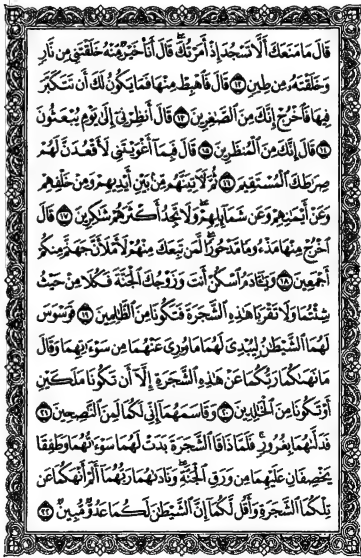 قَالَ مَا مَنَعَكَ أَلَّا تَسْجُدَ إِذْ أَمَرْتُكَ ۖ قَالَ أَنَا۠ خَيْرٌ مِّنْهُ خَلَقْتَنِى مِن نَّارٍ
وَخَلَقْتَهُۥ مِن طِينٍ ۝١٢ قَالَ فَٱهْبِطْ مِنْهَا فَمَا يَكُونُ لَكَ أَن تَتَكَبَّرَ
فِيهَا فَٱخْرُجْ إِنَّكَ مِنَ ٱلصَّٰغِرِينَ ۝١٣ قَالَ أَنظِرْنِىٓ إِلَىٰ يَوْمِ يُبْعَثُونَ
۝١٤ قَالَ إِنَّكَ مِنَ ٱلْمُنظَرِينَ ۝١٥ قَالَ فَبِمَآ أَغْوَيْتَنِى لَأَقْعُدَنَّ لَهُمْ
صِرَٰطَكَ ٱلْمُسْتَقِيمَ ۝١٦ ثُمَّ لَءَاتِيَنَّهُم مِّنۢ بَيْنِ أَيْدِيهِمْ وَمِنْ خَلْفِهِمْ
وَعَنْ أَيْمَٰنِهِمْ وَعَن شَمَآئِلِهِمْ ۖ وَلَا تَجِدُ أَكْثَرَهُمْ شَٰكِرِينَ ۝١٧ قَالَ
ٱخْرُجْ مِنْهَا مَذْءُومًا مَّدْحُورًا ۖ لَّمَن تَبِعَكَ مِنْهُمْ لَأَمْلَأَنَّ جَهَنَّمَ مِنكُمْ
أَجْمَعِينَ ۝١٨ وَيَٰٓـَٔادَمُ ٱسْكُنْ أَنتَ وَزَوْجُكَ ٱلْجَنَّةَ فَكُلَا مِنْ حَيْثُ
شِئْتُمَا وَلَا تَقْرَبَا هَٰذِهِ ٱلشَّجَرَةَ فَتَكُونَا مِنَ ٱلظَّٰلِمِينَ ۝١٩ فَوَسْوَسَ
لَهُمَا ٱلشَّيْطَٰنُ لِيُبْدِىَ لَهُمَا مَا وُۥرِىَ عَنْهُمَا مِن سَوْءَٰتِهِمَا وَقَالَ
مَا نَهَىٰكُمَا رَبُّكُمَا عَنْ هَٰذِهِ ٱلشَّجَرَةِ إِلَّآ أَن تَكُونَا مَلَكَيْنِ
أَوْ تَكُونَا مِنَ ٱلْخَٰلِدِينَ ۝٢٠ وَقَاسَمَهُمَآ إِنِّى لَكُمَا لَمِنَ ٱلنَّٰصِحِينَ ۝٢١
فَدَلَّىٰهُمَا بِغُرُورٍ ۚ فَلَمَّا ذَاقَا ٱلشَّجَرَةَ بَدَتْ لَهُمَا سَوْءَٰتُهُمَا وَطَفِقَا
يَخْصِفَانِ عَلَيْهِمَا مِن وَرَقِ ٱلْجَنَّةِ ۖ وَنَادَىٰهُمَا رَبُّهُمَآ أَلَمْ أَنْهَكُمَا عَن
تِلْكُمَا ٱلشَّجَرَةِ وَأَقُل لَّكُمَآ إِنَّ ٱلشَّيْطَٰنَ لَكُمَا عَدُوٌّ مُّبِينٌ ۝٢٢